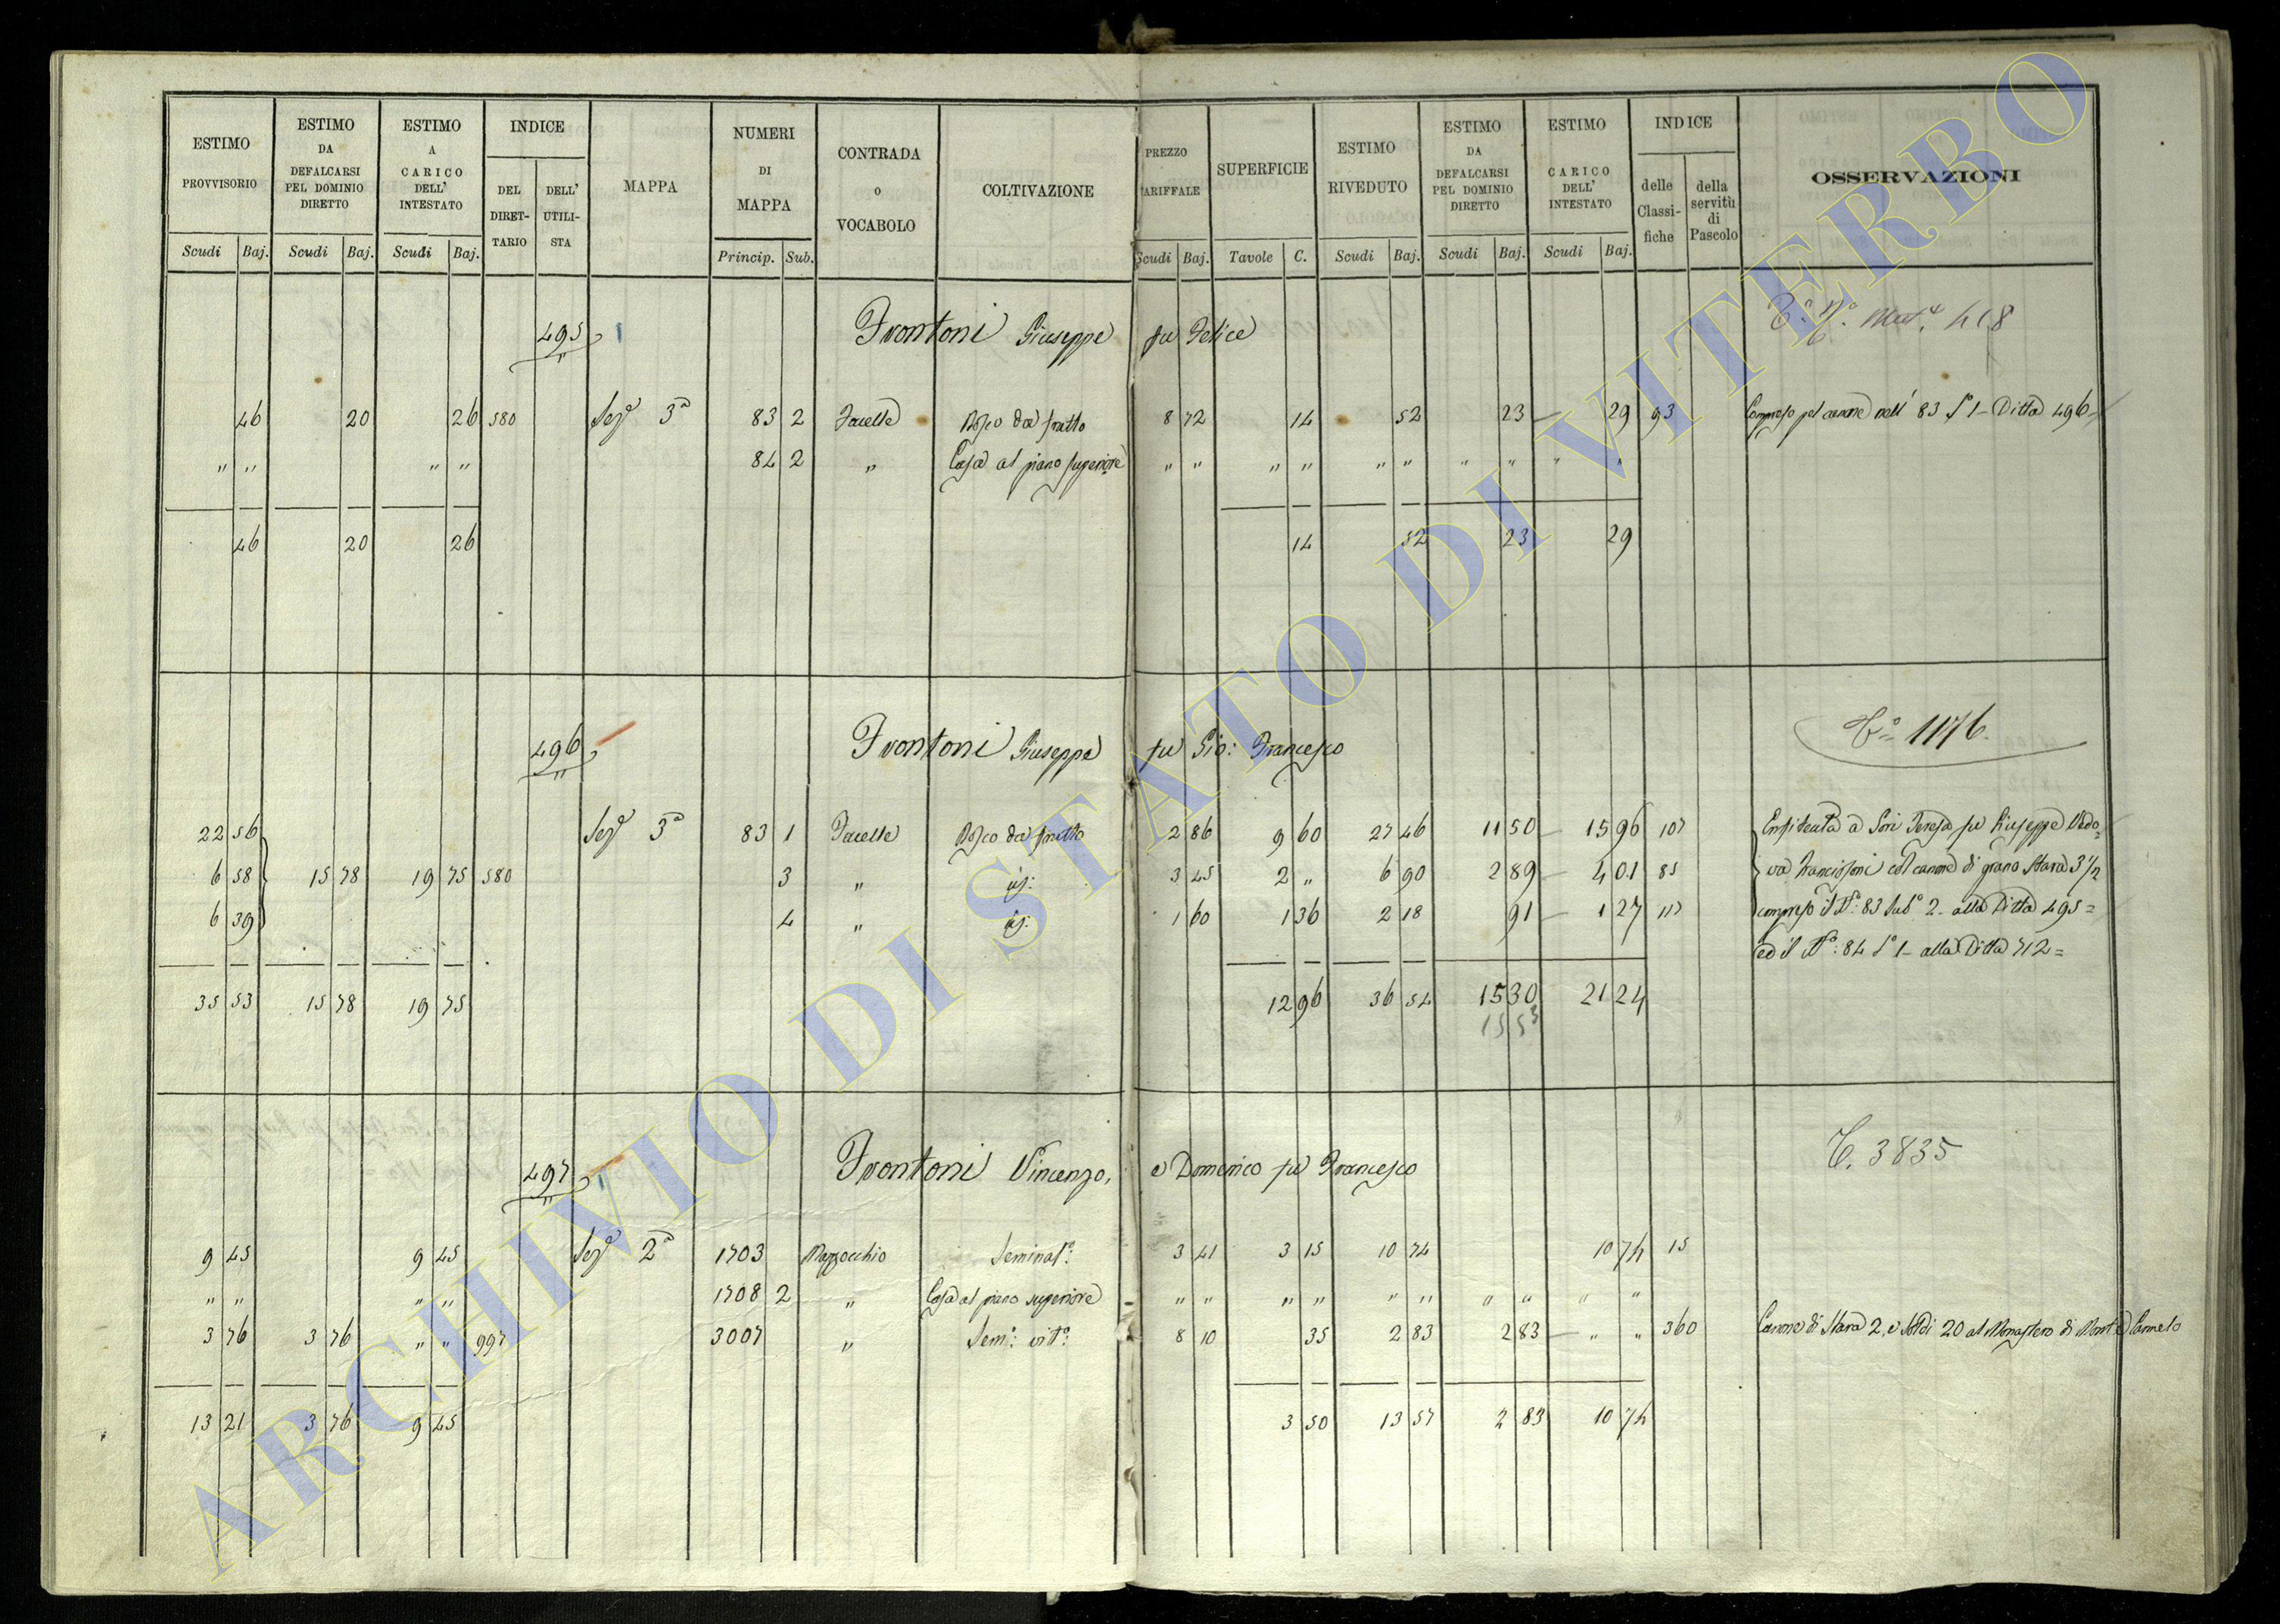 ESTIMO PROVVISORIO | ESTIMO DA DEFALCARSI PEL DOMINIO DIRETTO | ESTIMO A CARICO DELL' INTESTATO | INDICE | MAPPA | NUMERI DI MAPPA | CONTRADA O VOCABOLO | COLTIVAZIONE | PREZZO TARIFFALE | SUPERFICIE | ESTIMO RIVEDUTO | ESTIMO DA DEFALCARSI PEL DOMINIO DIRETTO | ESTIMO CARICO DELL' INTESTATO | INDICE | OSSERVAZIONI
DEL DIRETTARIO | DELL' UTILISTA | delle Classifiche | della servitù di Pascolo
Scudi Baj. | Scudi Baj. | Scudi Baj. | Princip. Sub. | Scudi Baj. | Tavole C. | Scudi Baj. | Scudi Baj. | Scudi Baj.
495 Frontoni Giuseppe fu Felice 418
46 | 20 | 26 | 580 | Sez.e 3a | 83 | 2 | Facelle | Bosco da frutto | 8 72 | 14 | 52 | 23 | 29 | 93 | Compreso pel canone nell' 83 S.o 1 Ditta 496
" " | " " | 84 | 2 | " | Casa al piano superiore | " " | " " | " " | " " | " "
46 | 20 | 26 | 14 | 52 | 23 | 29
496 Frontoni Giuseppe fu Gio: Francesco 1176
22 56 | Sez.e 3a | 83 | 1 | Facelle | Bosco da frutto | 2 86 | 9 60 | 27 46 | 11 50 | 15 96 | 107 | Enfiteuta a Sori Teresa fu Giuseppe Vedo=
6 58 | 15 78 | 19 75 | 580 | 3 | " | id: | 3 45 | 2 " | 6 90 | 2 89 | 4 01 | 85 | va Francisconi col canone di grano Stara 3 1/2
6 39 | 4 | " | id: | 1 60 | 1 36 | 2 18 | 91 | 1 27 | 117 | compreso il N.o: 83 Sub.o 2 alla Ditta 495=
ed il N.o: 84 S.o 1 alla Ditta 712=
35 53 | 15 78 | 19 75 | 12 96 | 36 54 | 15 30 | 21 24
15 53
497 Frontoni Vincenzo, e Domenico fu Francesco 3835
9 45 | 9 45 | Sez.e 2a | 1703 | Mazzocchio | Seminat.o: | 3 41 | 3 15 | 10 74 | 10 74 | 15
" " | " " | 1708 | 2 | " | Casa al piano superiore | " " | " " | " " | " " | " "
3 76 | 3 76 | " " | 997 | 3007 | " | Sem.o: vit.o: | 8 10 | 35 | 2 83 | 2 83 | " " | 360 | Canone di Stara 2, e Soldi 20 al Monastero di Monte Carmelo
13 21 | 3 76 | 9 45 | 3 50 | 13 57 | 2 83 | 10 74
ARCHIVIO DI STATO DI VITERBO